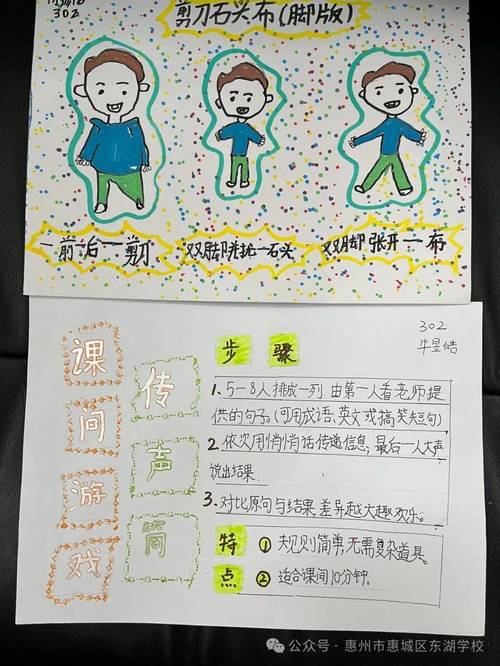 302
剪刀石头布(脚版)
一前一后一剪刀
双脚并拢一石头
双脚张开一布
302
牛昱皓
课间游戏
传声筒
步骤
1. 5-8人排成一列,由第一人看老师提
供的句子。(可用成语,英文或搞笑短句)
2. 依次用悄悄话传递信息,最后一人大声
说出结果
3. 对比原句与结果,差异越大趣欢乐。
特点
① 规则简单,无需复杂道具。
② 适合课间10分钟。
公众号·惠州市惠城区东湖学校